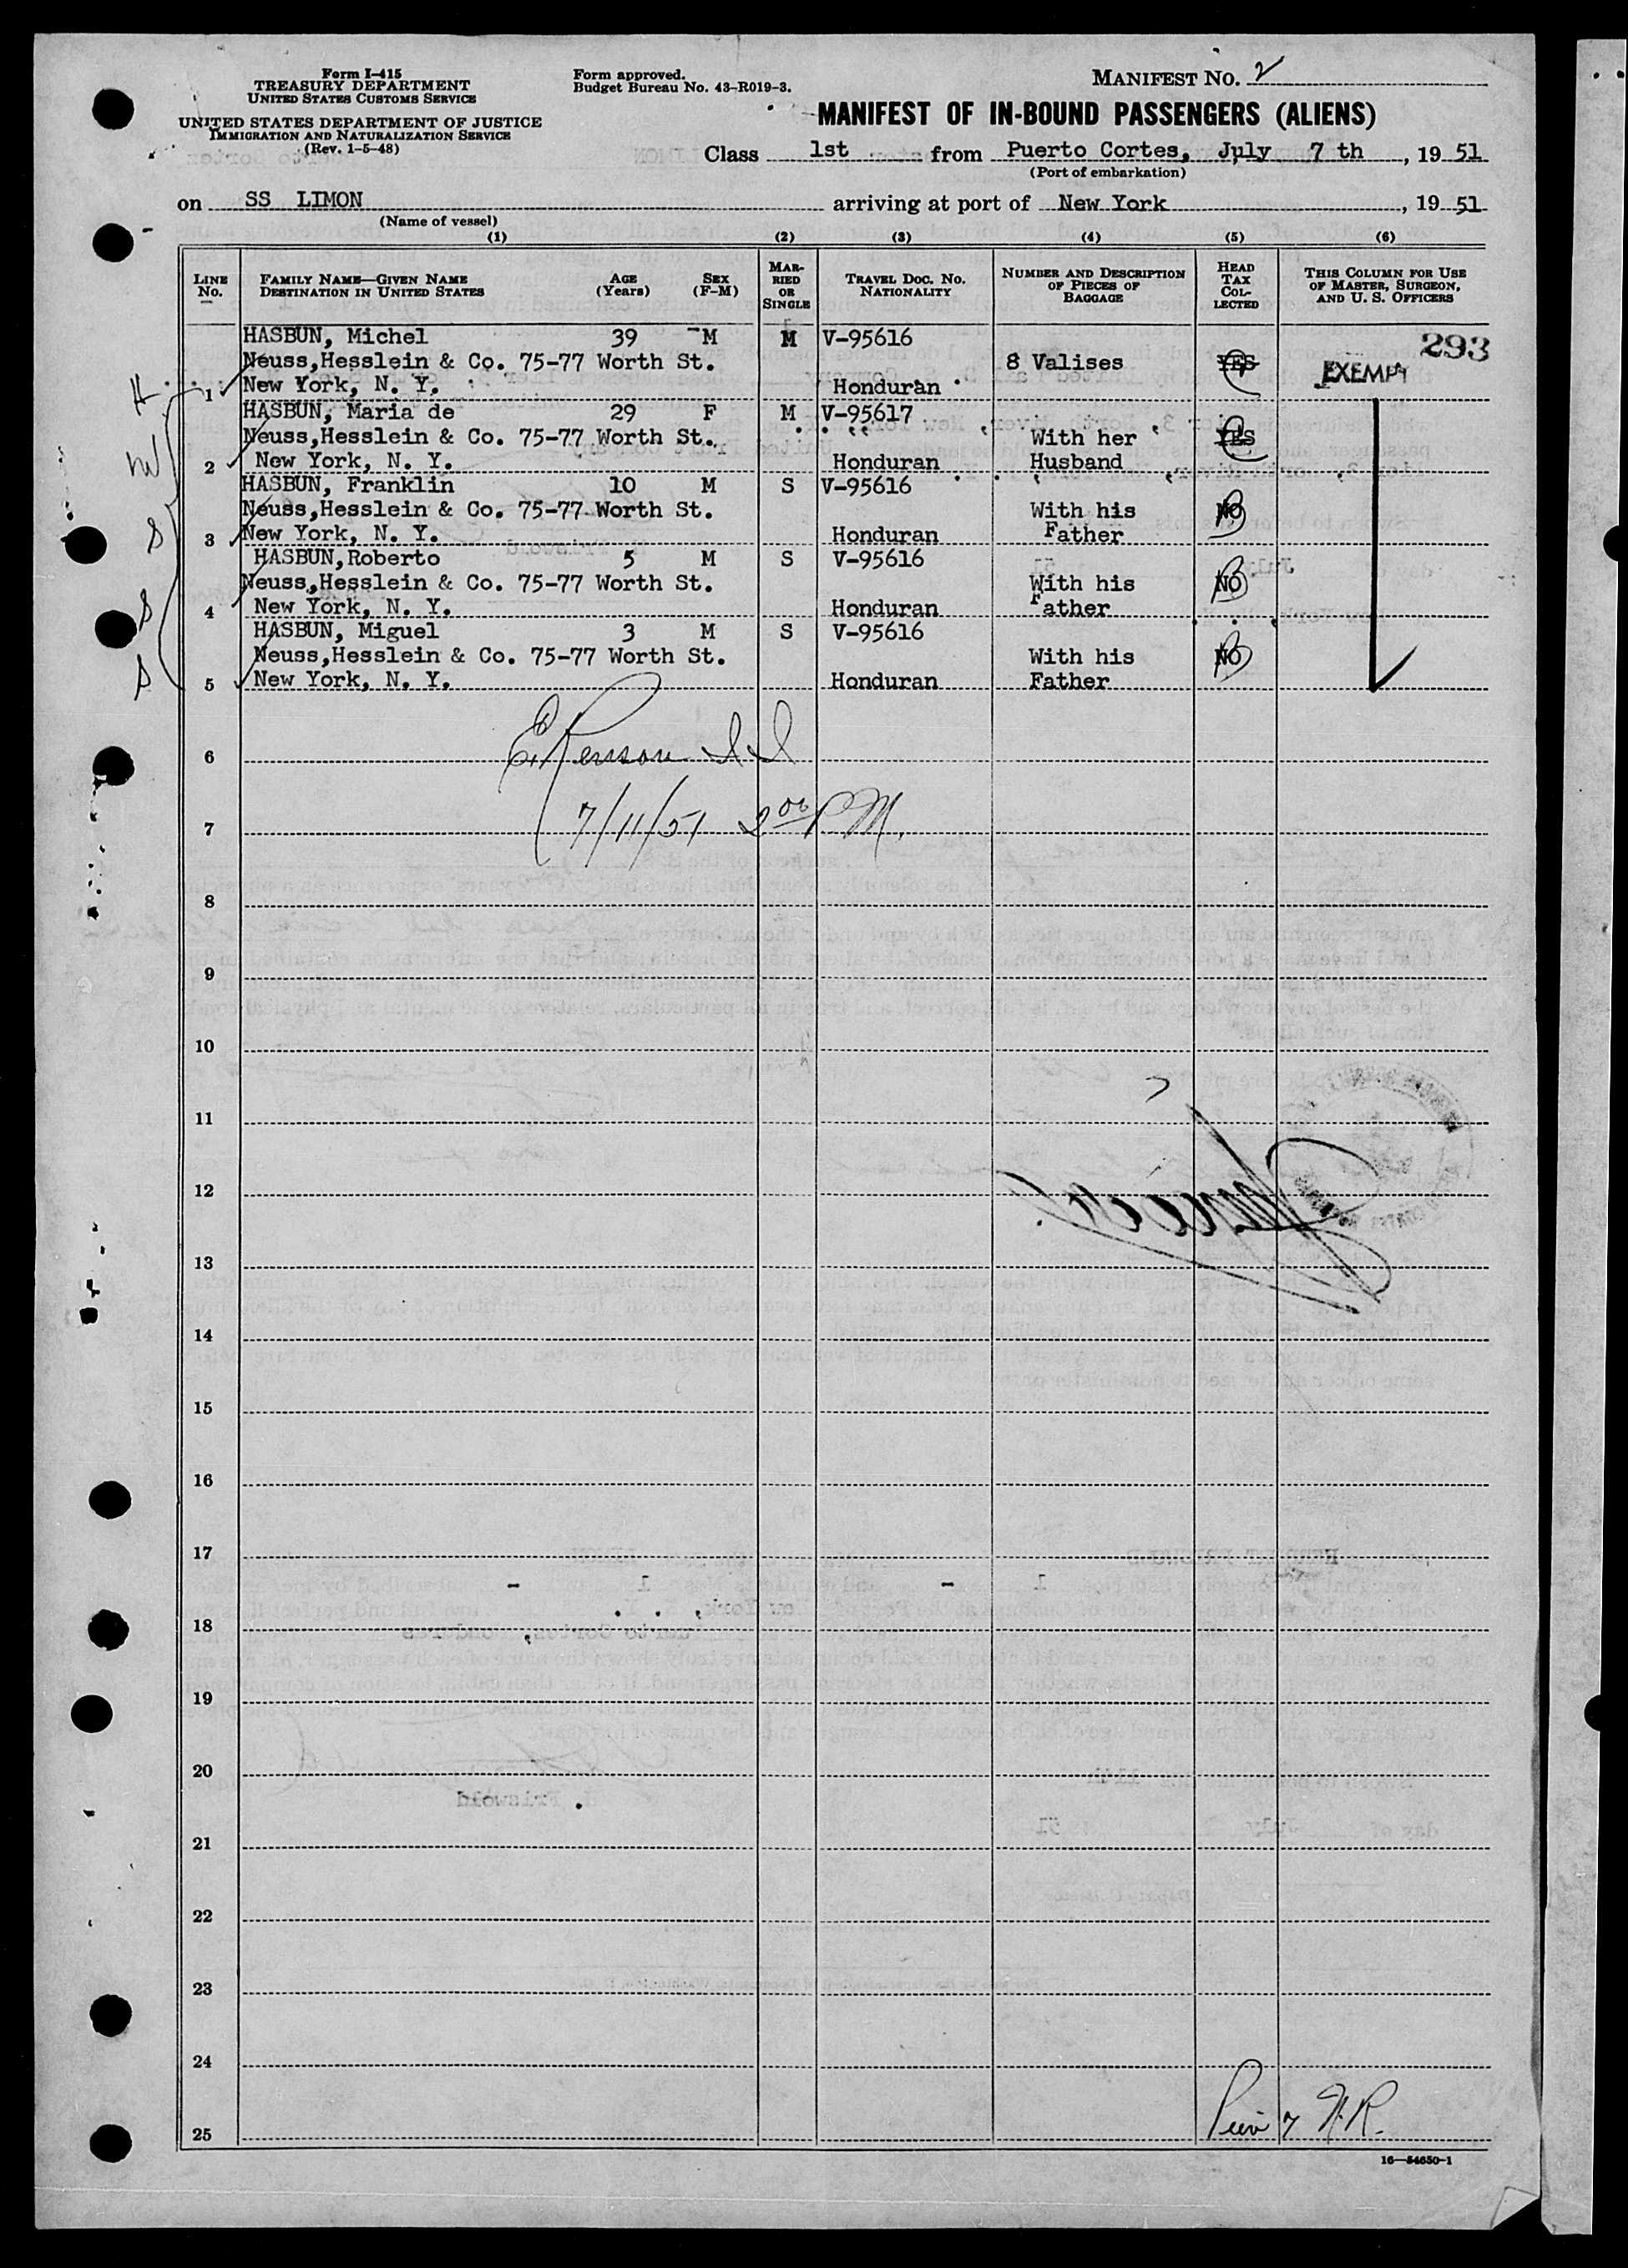 Form I-415
TREASURY DEPARTMENT
UNITED STATES CUSTOMS SERVICE
UNITED STATES DEPARTMENT OF JUSTICE
IMMIGRATION AND NATURALIZATION SERVICE
(Rev. 1-5-48)
Form approved.
Budget Bureau No. 43-R019-3.
MANIFEST NO. 2
MANIFEST OF IN-BOUND PASSENGERS (ALIENS)
Class 1st from Puerto Cortes, July 7 th, 19 51
(Port of embarkation)
on SS LIMON arriving at port of New York, 19 51
(Name of vessel)
(1) (2) (3) (4) (5) (6)
LINE No. FAMILY NAME—GIVEN NAME DESTINATION IN UNITED STATES AGE (Years) SEX (F-M) MARRIED OR SINGLE TRAVEL DOC. NO. NATIONALITY NUMBER AND DESCRIPTION OF PIECES OF BAGGAGE HEAD TAX COLLECTED THIS COLUMN FOR USE OF MASTER, SURGEON, AND U. S. OFFICERS
293
HASBUN, Michel 39 M M V-95616
Neuss,Hesslein & Co. 75-77 Worth St. 8 Valises YES EXEMPT
H 1 New York, N. Y. Honduran
HASBUN, Maria de 29 F M V-95617
Neuss,Hesslein & Co. 75-77 Worth St. With her YES
W 2 New York, N. Y. Honduran Husband
HASBUN, Franklin 10 M S V-95616
Neuss,Hesslein & Co. 75-77 Worth St. With his NO
S 3 New York, N. Y. Honduran Father
HASBUN,Roberto 5 M S V-95616
Neuss,Hesslein & Co. 75-77 Worth St. With his NO
S 4 New York, N. Y. Honduran Father
HASBUN, Miguel 3 M S V-95616
Neuss,Hesslein & Co. 75-77 Worth St. With his NO
S 5 New York, N. Y. Honduran Father
6
7 7/11/51 2 00 PM.
8
9
10
11
12
13
14
15
16
17
18
19
20
21
22
23
24
25
16—54650-1